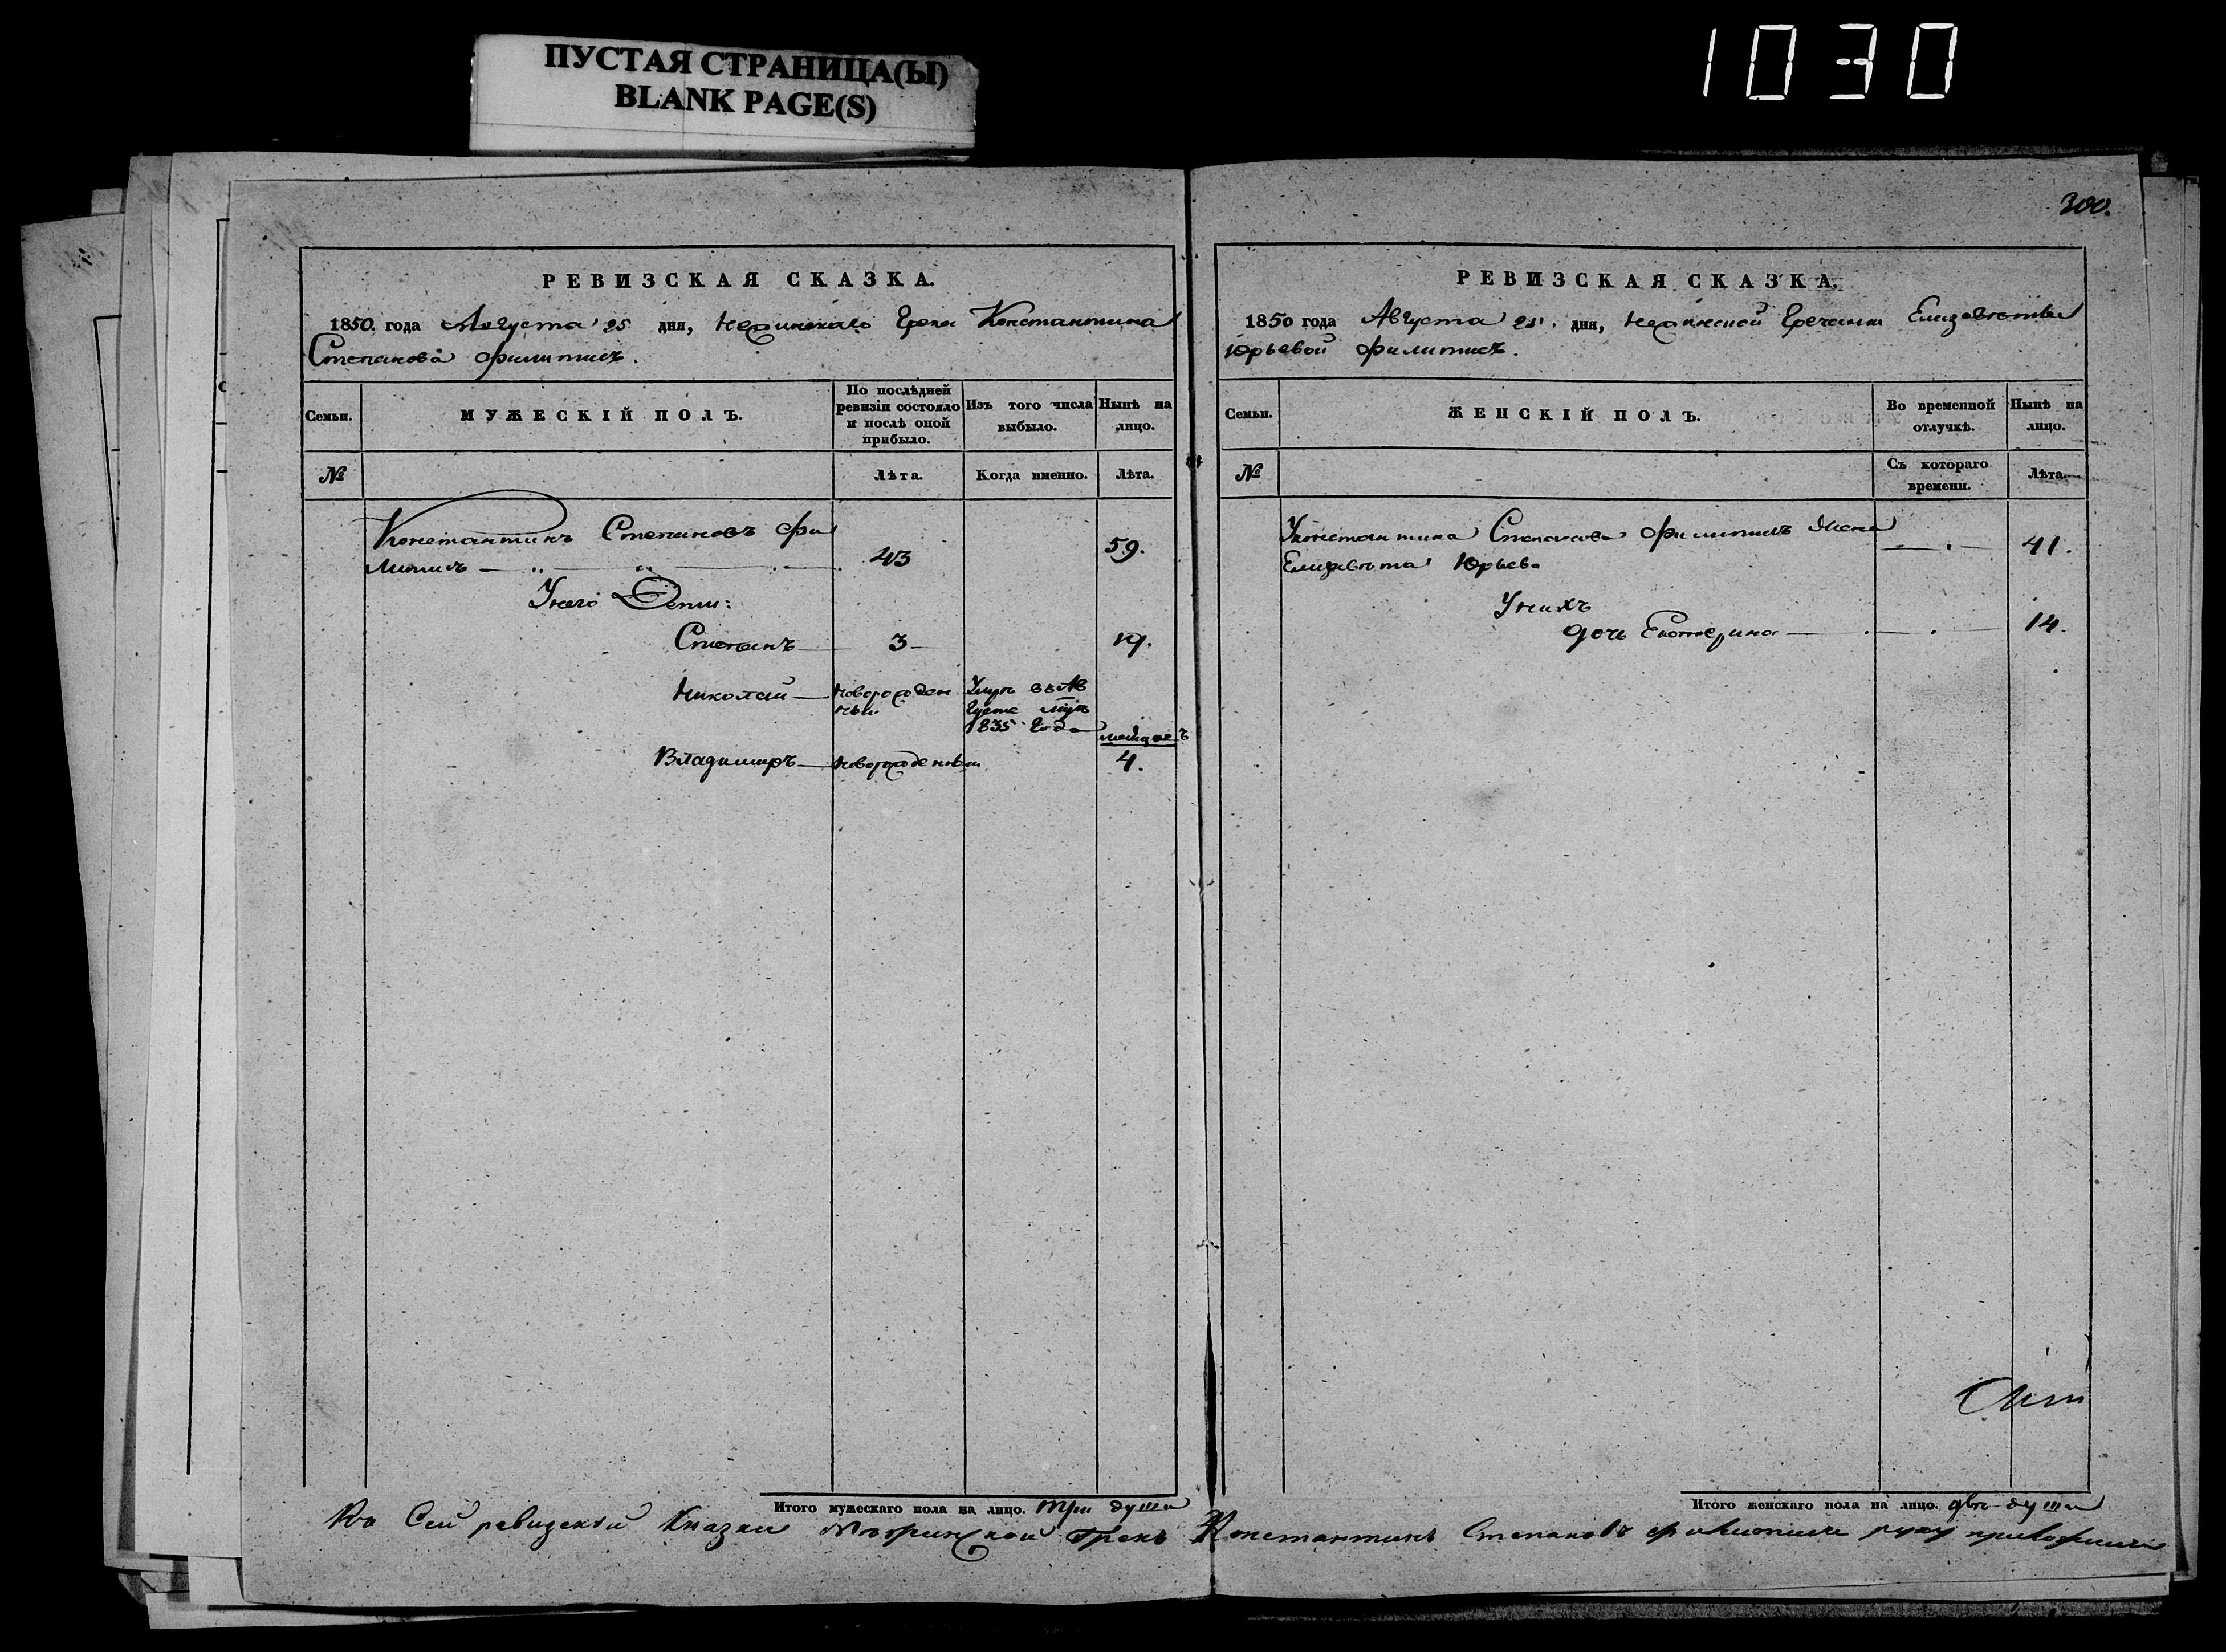 ПУСТАЯ СТРАНИЦА(Ы)
BLANK PAGE(S)
1030
300.
РЕВИЗСКАЯ СКАЗКА.
1850. года Августа 25 дня, Нежинскаго Грека Константина
Степанова Филитисъ.
Семьи.
МУЖЕСКІЙ ПОЛЪ.
По послѣдней ревизіи состояло и послѣ оной прибыло.
Изъ того числа выбыло.
Нынѣ на лицо.
№
Лѣта.
Когда именно.
Лѣта.
Константинъ Степановъ Фи
литисъ 43 59.
У него Дети:
Степанъ 3 19.
Николай Новорожден ный Умре въ Ав густе 1835 года
Владимиръ Новорожденный месяцевъ 4.
Итого мужескаго пола на лицо. три души
РЕВИЗСКАЯ СКАЗКА.
1850 года Августа 25. дня, Нежинской Гречанки Елизаветы
Юрьевой Филитисъ.
Семьи.
ЖЕНСКІЙ ПОЛЪ.
Во временной отлучкѣ.
Нынѣ на лицо.
№
Съ котораго времени.
Лѣта.
У Константина Степанова Филитисъ жена
Елизавета Юрьева 41.
У нихъ
дочь Екатерина 14.
Итого женскаго пола на лицо. двѣ души
Ко Сей ревизской Сказки Нежинской Грекъ Константинъ Степановъ Филитисъ руку приложилъ